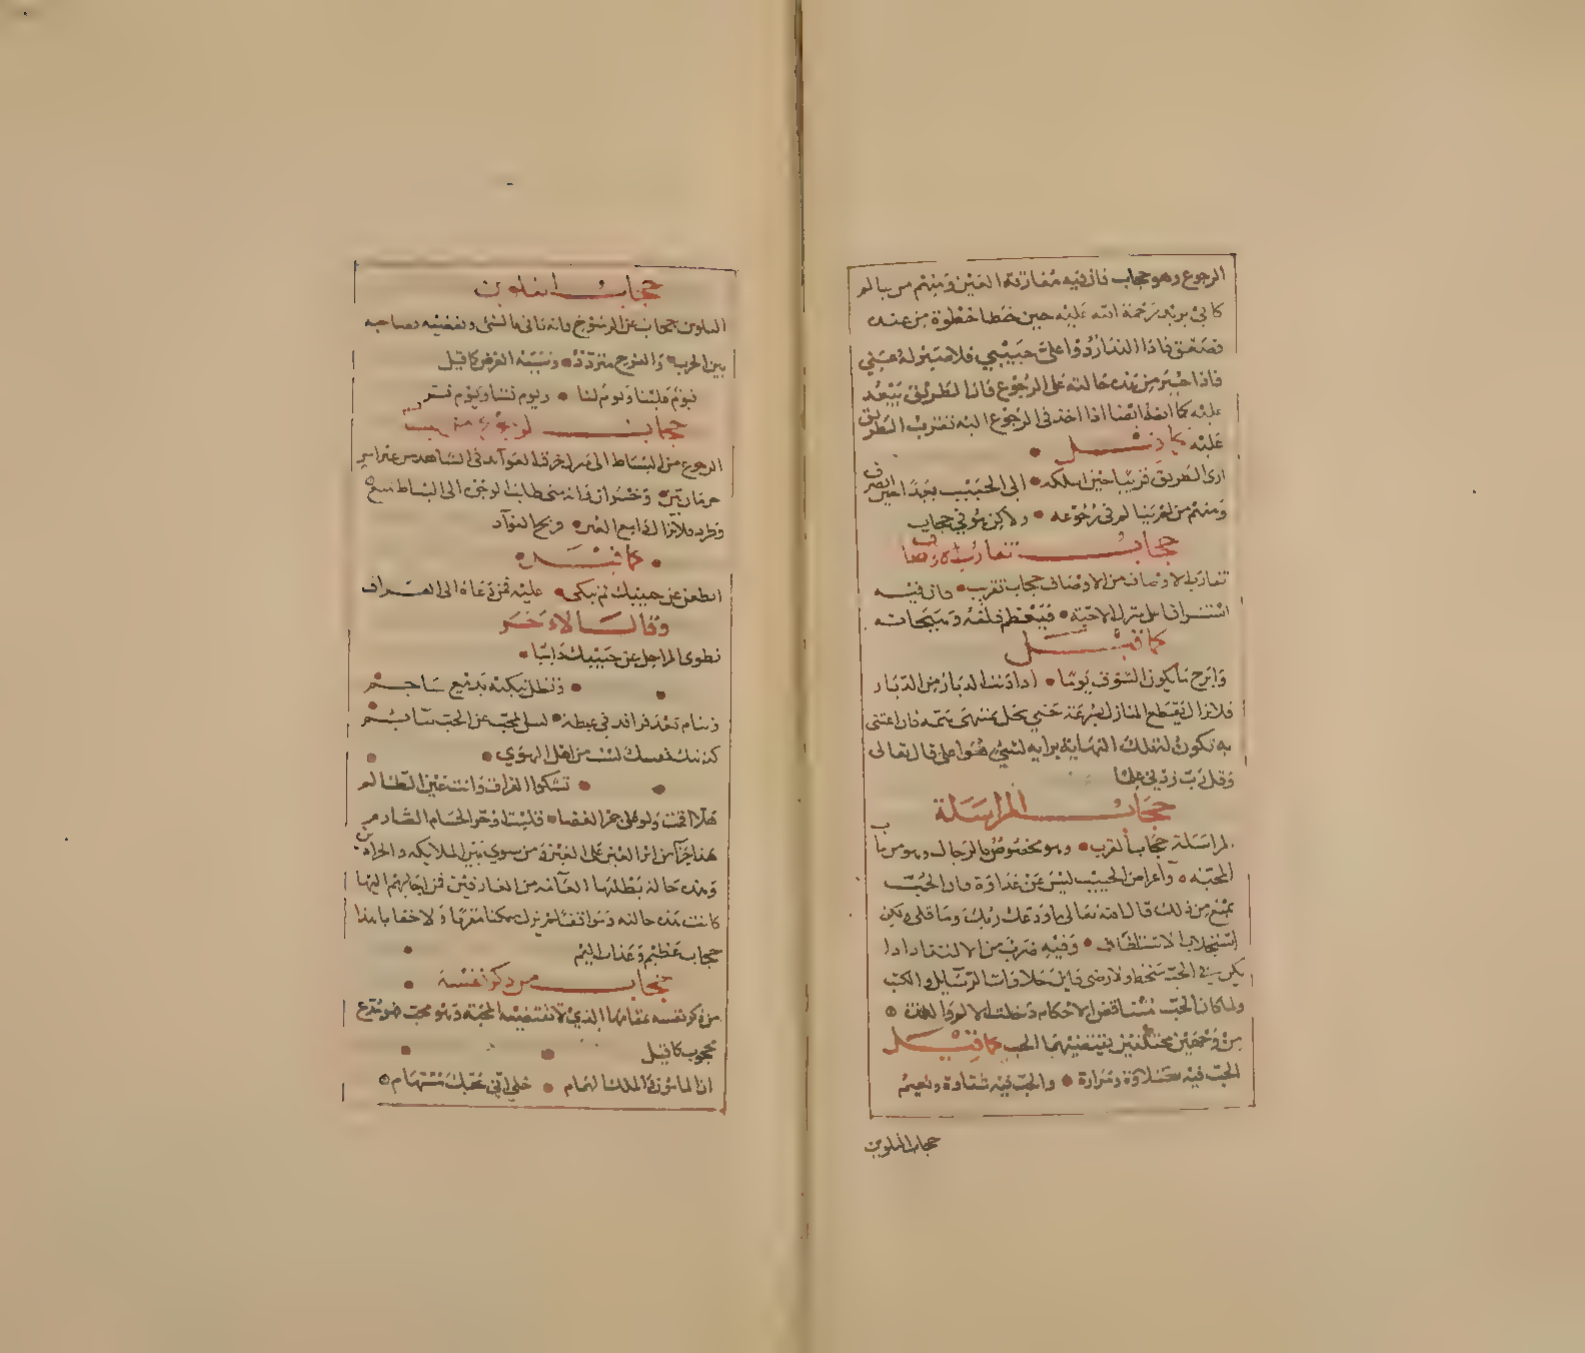 الرجوع وهو حجاب فان فيه مفارقة العين ومنهم من يبالم
كابي يزيد رحمة الله عليه حين خطا خطوة من عنده
فصعق فاذا الندا ردوا على حبيبي فلا صبر له عني
فاذا خير من هذه حالته على الرجوع فان الطريق يبعد
عليه كما انه ايضا اذا اخذ في الرجوع اليه تقرب الطريق
عليه كما قيل
ارى الطريق قريبا حين اسلكه • الى الحبيب بعيدا حين انصرف
ومنهم من لا يبالم في رجوعه • ولاكن هو في حجاب
حجاب تقارب الاوصاف
تقارب الاوصاف من الاوصاف حجاب تقريب • وان فيه
استشرافا على منزل الاحبة • فيعظم قلقه وهيجانه
كما قيل
وابرح ما يكون الشوق يوما • اذا دنت الديار من الديار
فلا يزال يقطع المنازل بسرعة حتى يحل بمنتهى همه فان اعتنى
به تكون له تلك النهاية براية لشيء هو اعلى قال تعالى
وقل رب زدني علما
حجاب المراسلة
المراسلة حجاب القرب • وهو مخصوص بالرجال وهو من باب
المحبة • واعراض الحبيب ليس عن عداوة فان الحب
يمنع من ذلك قال الله تعالى ما ودعك ربك وما قلى ولكن
استجلابا لاستنطاف • وفيه ضرب من الانتقاد اذا
يكن في الحب سخط ولا رضى فاين حلاوات الرسايل والكتب
ولما كان الحب متناقض الاحكام دخلت الامور المختلفة
من وجهين مختلفين يقتضيهما الحب كما قيل
الحب فيه حلاوة ومرارة • والحب فيه شقاوة ونعيم
حجاب التلوين
حجاب التلوين
التلوين حجاب عن الرسوخ فانه تاتي بالشيء ونقضيه فصاحبه
بين الحرب والفرح متردد • ونسبته الغرض كما قيل
فيوم علينا ويوم لنا • ويوم نساء ويوم نسر
حجاب الرجوع
الرجوع من البساط الى خرق العوائد في الشاهد
حرمان بين • وخسران فانه متى طالبه الوجى الى البساط منع
وطرد فلا يزال دامع العين • قريح الفؤاد
كما قيل
اتظعن عن حبيبك ثم تبكي • عليه فمن دعاك الى الفراق
وقال الاخر
نطوي المراحل عن حبيبك دائبا •
وتظل تبكيه بدمع ساجم
وتنام بعد فراقه في غبطة • لسل المحب عن الحب بنائم
كذبتك نفسك لست من اهل الهوى •
تشكو الفراق وانت عين الظالم
هلا اقمت ولو على جمر الغضا • قلبت او حد الحسام الصارم
هذا جزاء من اثر الغير على العين ومن سوى بين الملايكة والحراس
وهذه حالة يطلبها العامة من العارفين فمن اجابهم اليها
كانت هذه حالته
حجاب عظيم وعذاب اليم
حجاب من ذكر نفسه
من ذكر نفسه بمقامها الذي لا تقتضيه المحبة وهو محب فهو مدع
محجوب كما قيل
انا المامون والملك الهمام • على اني بحبك مستهام